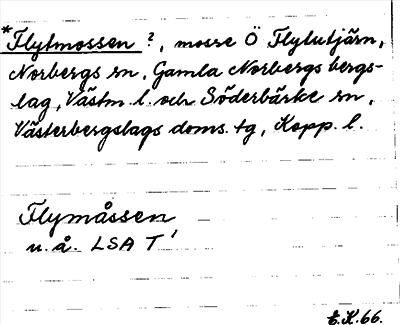 *Flytmossen ?, mosse Ö Flylutjärn,
Norbergs sn, Gamla Norbergs bergs-
lag, Västm. l. och Söderbärke sn,
Västerbergslags doms. tg, Kopp. l.
Flymåssen
u.å. LSA T1
E.K.66.